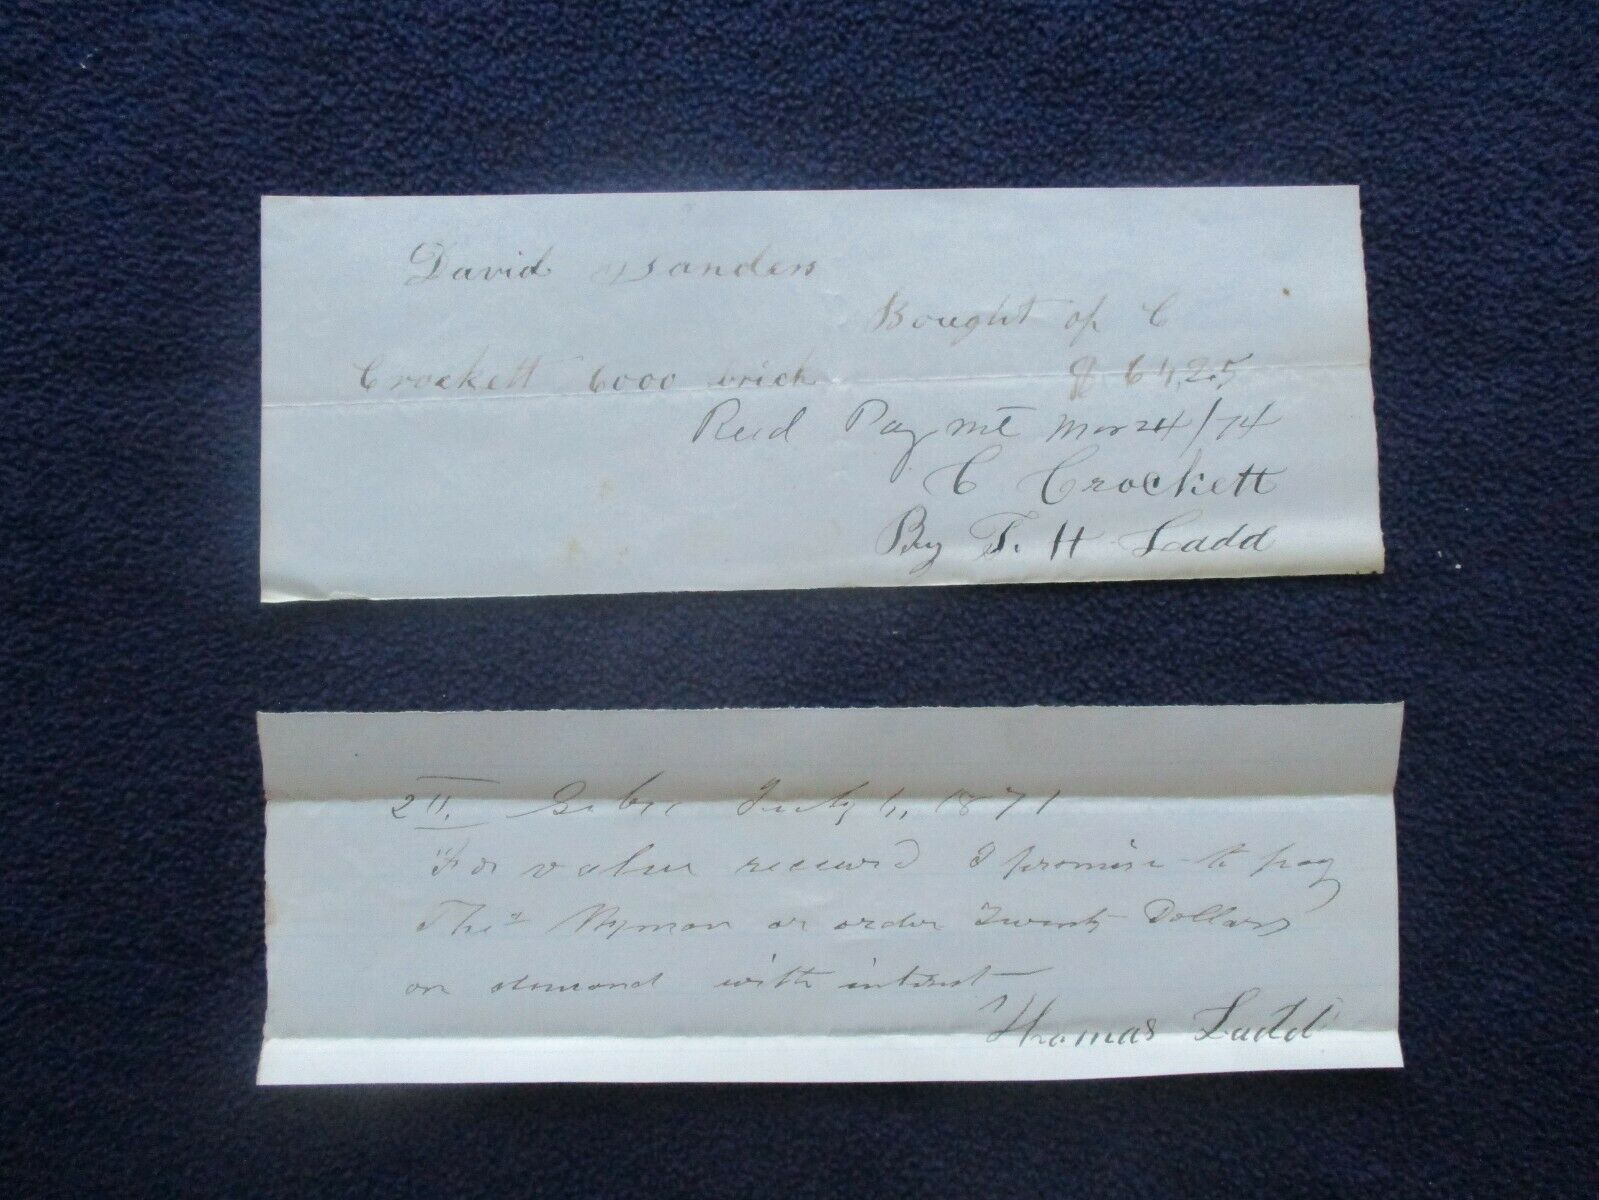 David Sanders
Bought of C
Crockett 6000 brick $ 64,25
Recd Paymt Mar 24/74
C Crockett
By T. H Ladd
July 6, 1871
For value received I promise to pay
Thos Wyman or order Twenty Dollars
on demand with interest
Thomas Ladd